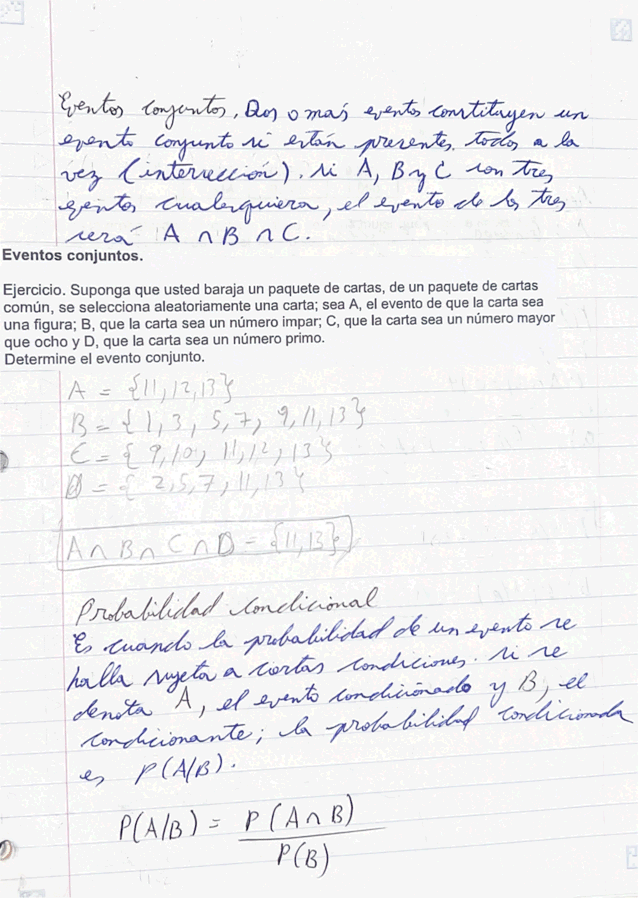 Eventos conjuntos. Dos o más eventos constituyen un
evento conjunto si están presentes, todos a la
vez (intersección). Si A, B y C son tres
eventos cualesquiera, el evento de los tres
será A ∩ B ∩ C.
Eventos conjuntos.
Ejercicio. Suponga que usted baraja un paquete de cartas, de un paquete de cartas
común, se selecciona aleatoriamente una carta; sea A, el evento de que la carta sea
una figura; B, que la carta sea un número impar; C, que la carta sea un número mayor
que ocho y D, que la carta sea un número primo.
Determine el evento conjunto.
A = {11,12,13}
B = {1,3,5,7,9,11,13}
C = {9,10,11,12,13}
D = {2,5,7,11,13}
A ∩ B ∩ C ∩ D = {11,13}
Probabilidad condicional
Es cuando la probabilidad de un evento se
halla sujeta a ciertas condiciones. Si se
denota A, el evento condicionado y B, el
condicionante; la probabilidad condicionada
es P(A/B).
P(A/B) = P(A ∩ B)
P(B)